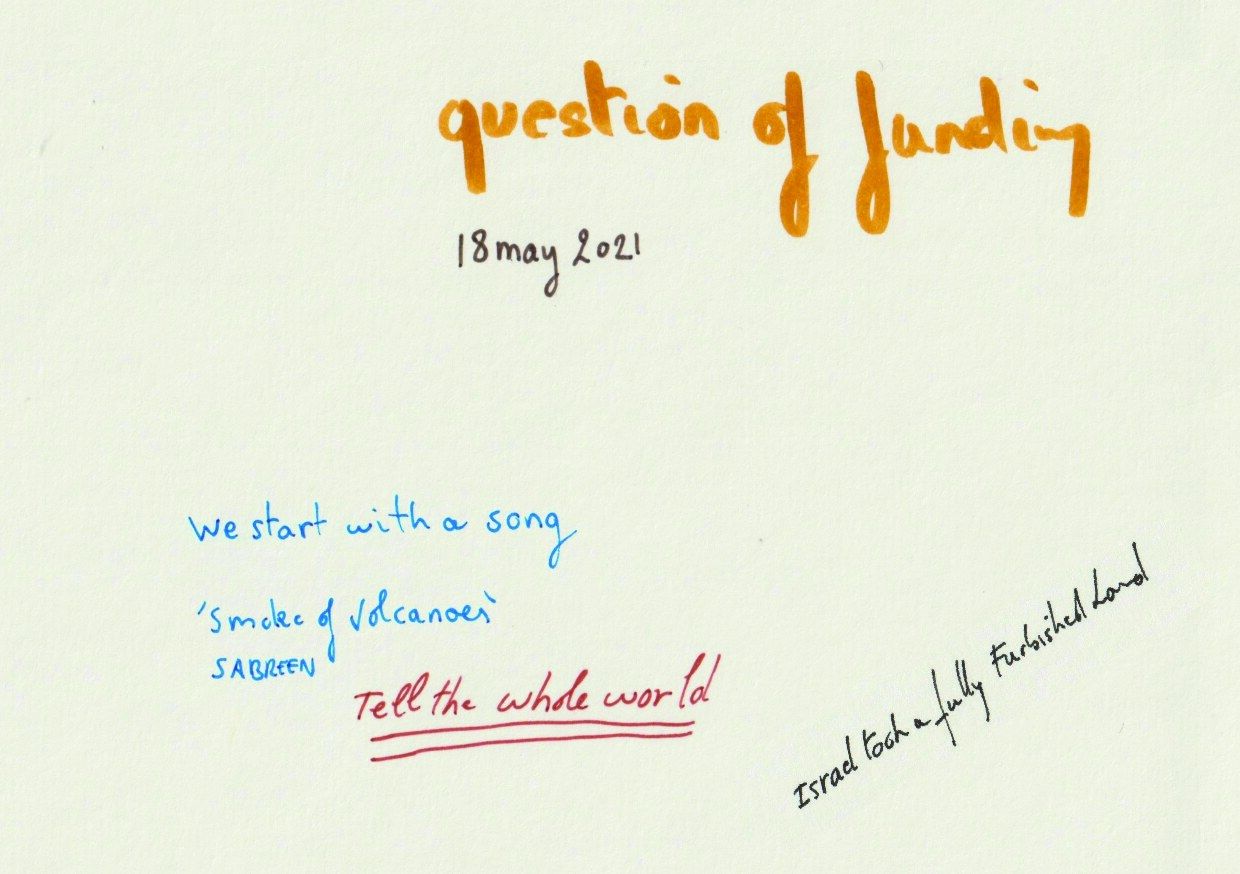 question of funding
18 may 2021
We start with a song
'Smoke of Volcanoes'
SABREEN
Tell the whole world
Israel took a fully Furbished Land